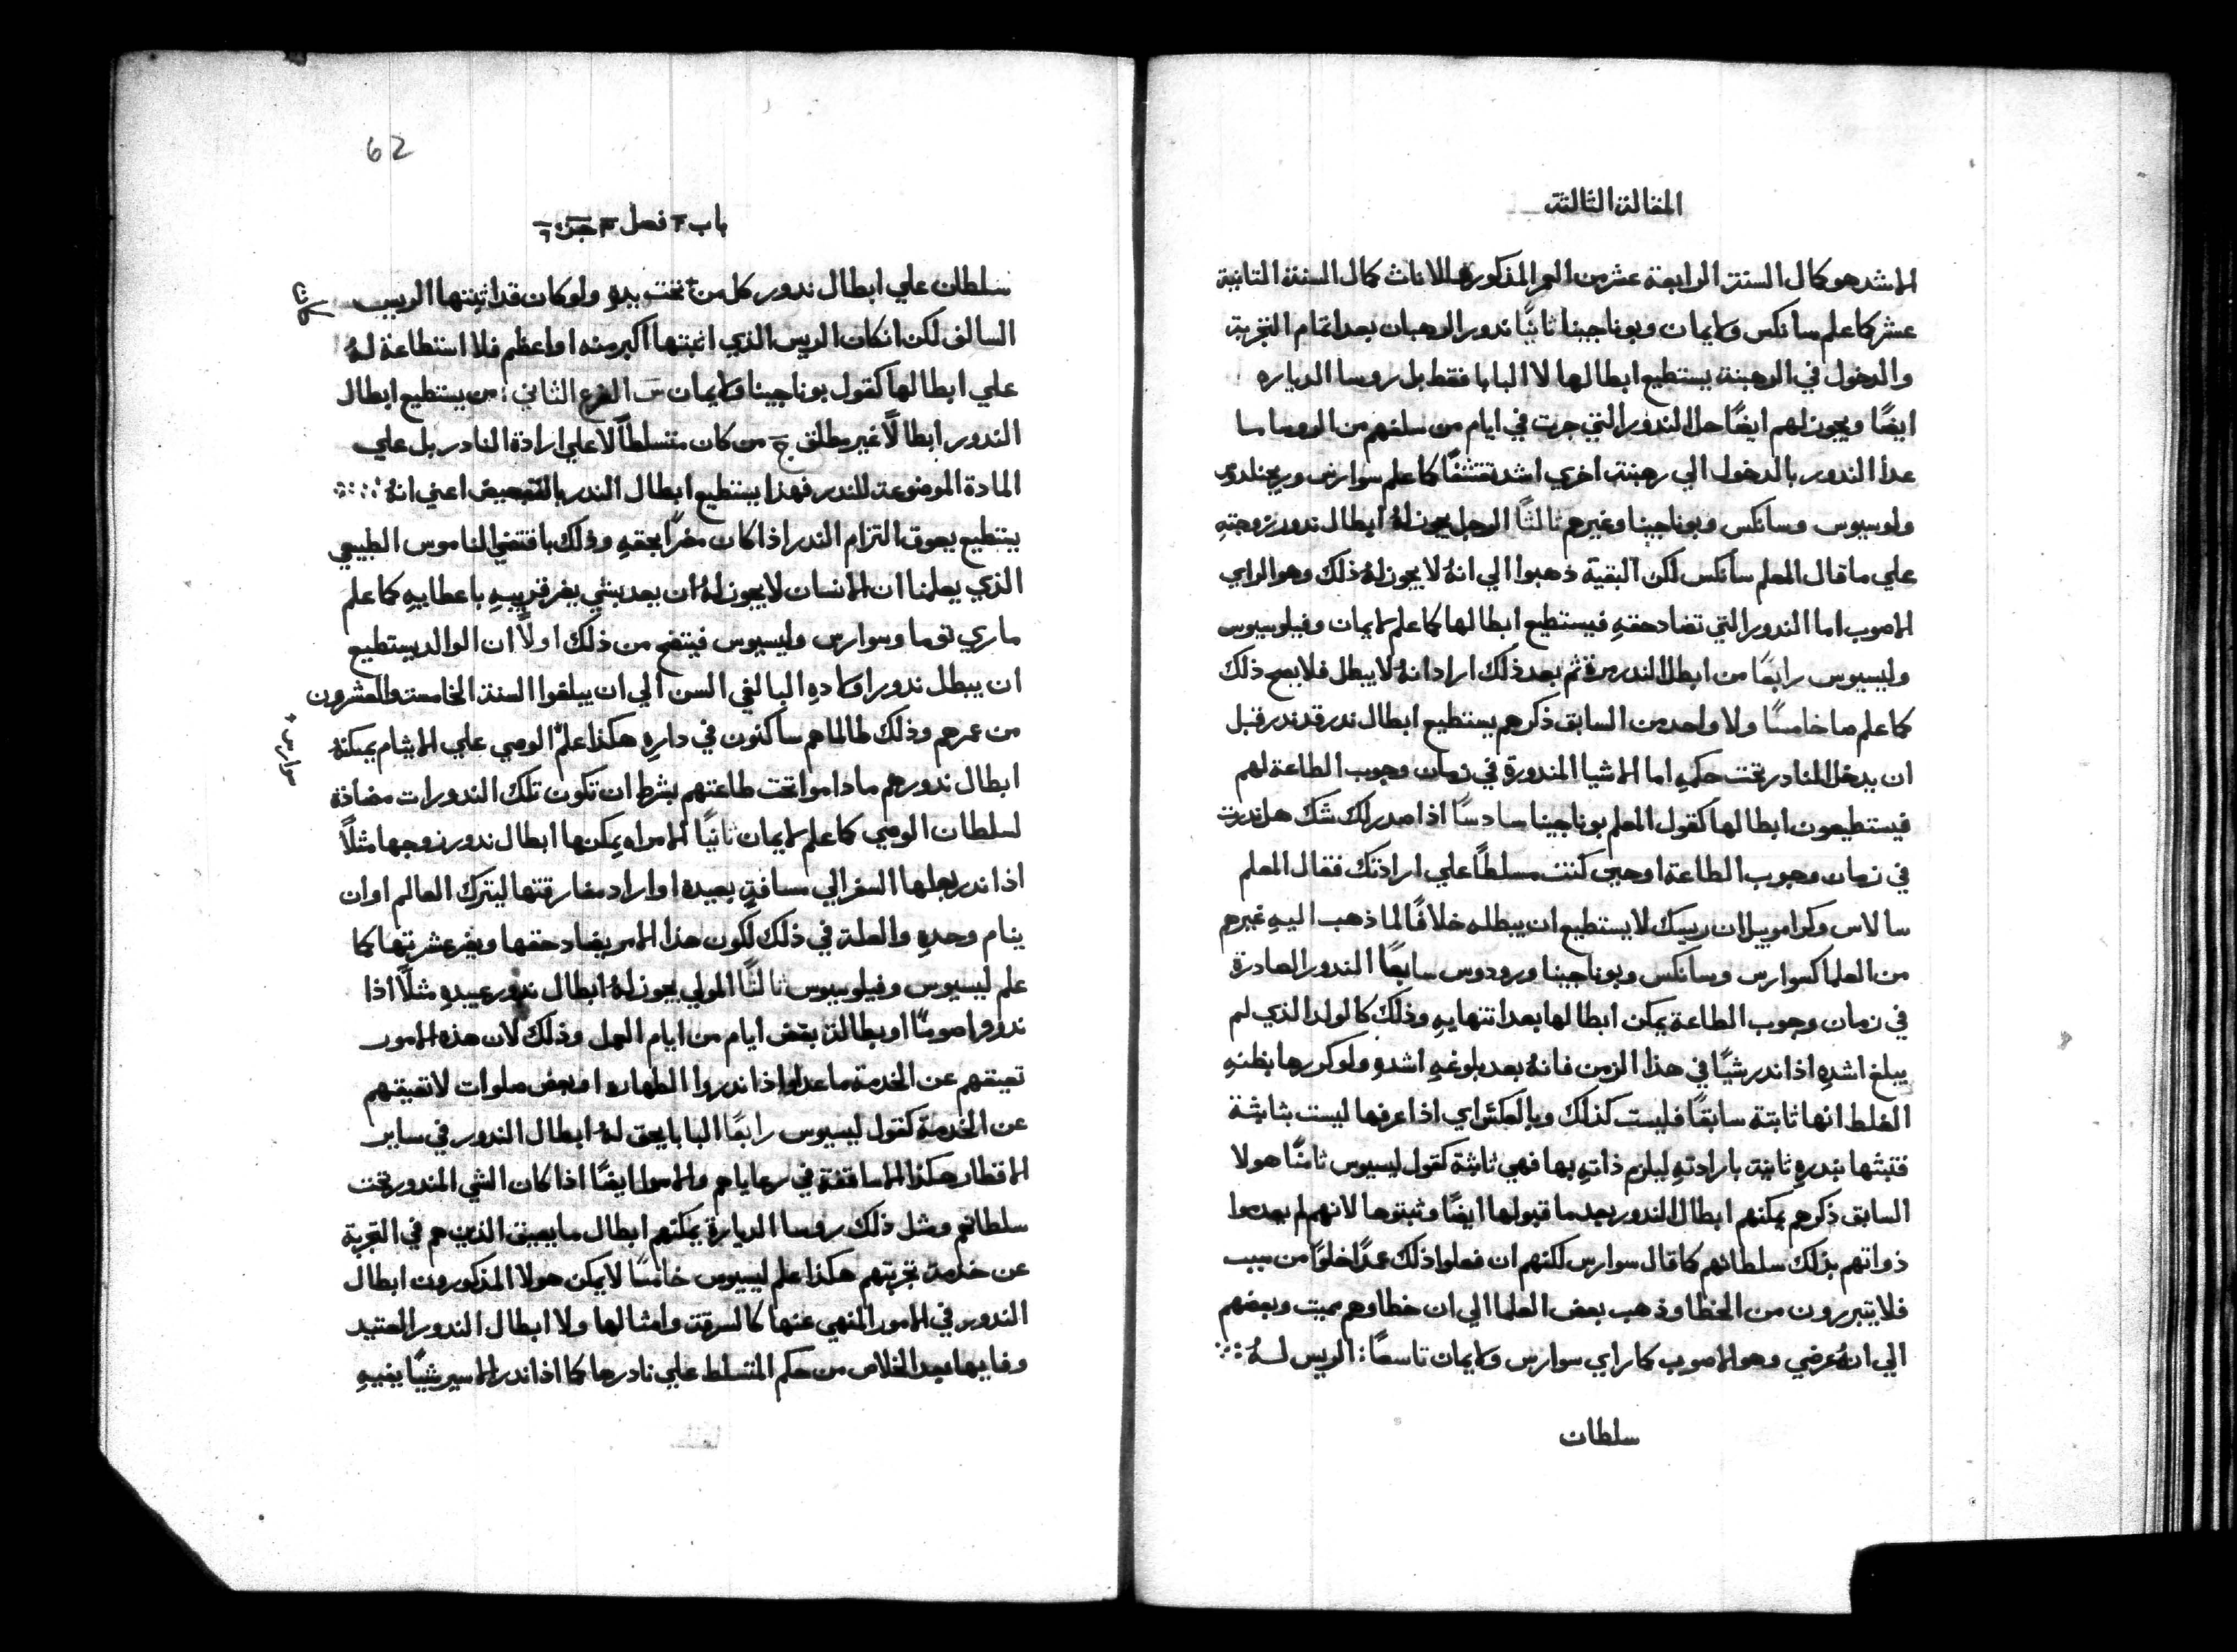 المقالة الثالثة
الاشد هو كمال السنة الرابعة عشر من العمر المذكورة للاناث كمال السنة الثانية
عشر كما علم سانكس وكايمان وبوناجينا ثانيًا ندور الرهبان بعد اتمام التجربة
والدخول في الرهبنة يستطيع ابطالها لا البابا فقط بل روسا الدياره
ايضًا ويجوز لهم ايضًا حل الندور التي جرت في ايام من سلفهم من الروسا ما
عدا الندور بالدخول الي رهبنة اخري اشد تقشفًا كما علم سوارس
ولوسيوس وسانكس وبوناجينا وغيرهم ثالثًا الرجل يجوز لهُ ابطال ندور زوجتهِ
علي ما قال المعلم سانكس لكن البقية ذهبوا الي انهُ لا يجوز لهُ ذلك وهو الراي
الاصوب اما الندور التي تضاد حقهِ فيستطيع ابطالها كما علم لايمان وفيلوسيوس
وليسيوس رابعًا من ابطل الندر مرة ثم بعد ذلك اراد انهُ لا يبطل فلا يصح ذلك
كما علم صا خامسًا ولا واحد من السابق ذكرهم يستطيع ابطال ندر قد ندر قبل
ان يدخل النادر تحت حكمهِ اما الاشيا المندورة في زمان وجوب الطاعة لهم
فيستطيعون ابطالها كقول المعلم بوناجينا سادسًا اذا صدر لك شك هل ندرت
في زمان وجوب الطاعة او حين كنت مسلطًا علي ارادتك فقال المعلم
سالاس وكرامويل ان رييسك لا يستطيع ان يبطله خلافًا لما ذهب اليهِ غيرهم
من العلما كسوارس وسانكس وبوناجينا ورودوس سابعًا الندور الصادرة
في زمان وجوب الطاعة يمكن ابطالها بعد انتهايهِ وذلك كالولد الذي لم
يبلغ اشدهِ اذا ندر شيًا في هذا الزمن فانهُ بعد بلوغهِ اشدهِ ولو كررها بظنهِ
الغلط انها ثابتة سابقًا فليست كذلك وبالعكس اي اذا عرفها ليست بثابتة
فتبثها بندرهِ ثانية بارادتهِ ليلزم ذاتهِ بها فهي ثابتة كقول ليسيوس ثامنًا هولا
السابق ذكرهم يمكنهم ابطال الندور بعد ما قبولها ايضًا وثبتوها لانهم لم يعدموا
ذواتهم بذلك سلطانهم كما قال سوارس لكنهم ان فعلوا ذلك عمدًا خلوًا من سبب
فلا يتبررون من الخطا وذهب بعض العلما الي ان خطاوهم مميت وبعضهم
الي انهُ عرضي وهو الاصوب كما راي سوارس وكايمان تاسعًا: الريس لـهُ
سلطان
62
باب ٣ فصل ٣ جزء ٦
سلطان علي ابطال ندور كل من تحت يدهِ ولو كان قد اثبتها الرييس
السالف لكن ان كان الريس الذي اثبتها اكبر منه او اعظم فلا استطاعة لهُ
علي ابطالها كقول بوناجينا وكايمان س الفرع الثاني: من يستطيع ابطال
الندور ابطالًا غير مطلق ج من كان متسلطًا لا علي ارادة النادر بل علي
المادة الموضوعة للندر فهذا يستطيع ابطال الندر اعني انهُ
يستطيع يعوق التزام الندر اذا كان مضرًا بحقهِ وذلك باقتضي الناموس الطبيعي
الذي يعلمنا ان الانسان لا يجوز لهُ ان يعد بشي يضر قريبهِ باعطاييهِ كما علم
ماري توما وسوارس وليسيوس فيتضح من ذلك اولًا ان الوالد يستطيع
ان يبطل ندور اولادهِ البالغي السن الي ان يبلغوا السنة الخامسة والعشرون
من عمرهم وذلك طالما هم ساكنون في دارهِ هكذا علم الوصي علي الايتام يمكنهُ
سوارس
ابطال ندورهم ما داموا تحت طاعتهم بشرط ان تكون تلك الندورات مضادة
لسلطان الوصي كما علم لايمان ثانيًا الامراه يمكنها ابطال ندور زوجها مثلًا
اذا ندر بعلها السفر الي مسافةٍ بعيدة او اراد مفارقتها ليترك العالم او ان
ينام وحدهِ والعلة في ذلك لكون هذا الامر يضاد حقها ويضر عشرتها كما
علم ليسيوس وفيلوسيوس ثالثًا المولي يجوز لهُ ابطال ندور عبيدهِ مثلًا اذا
ندروا صومًا او بطالة بعض ايام من ايام العمل وذلك لان هذه الامور
تعيقهم عن الخدمة ما عدا اذا ندروا الطهارة او بعض صلوات لا تعيقهم
عن الخدمة كقول ليسيوس رابعًا البابا يحق لهُ ابطال الندور في ساير
الاقطار هكذا الاساقفة في رعاياهم والامرا ايضًا اذا كان الشي المندور تحت
سلطانهم ومثل ذلك روسا الديارة يمكنهم ابطال ما يعيق الذين هم في التجربة
عن خدمة تجربتهم هكذا علم ليسيوس خامسًا لا يمكن هولا المذكورون ابطال
الندور في الامور المنهي عنها كالسرقة وامثالها ولا ابطال الندور العتيد
وفايها بعد الخلاص من حكم المتسلط علي نادرها كما اذا ندر الاسير شيًا يفيهِ